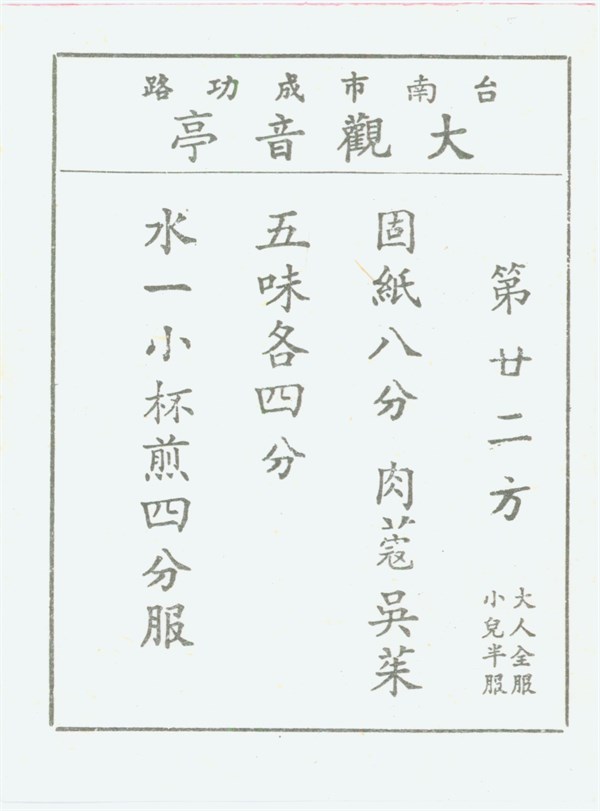 台南市成功路
大觀音亭
第廿二方
大人全服
小兒半服
固紙八分 肉蔻吳茱
五味各四分
水一小杯煎四分服